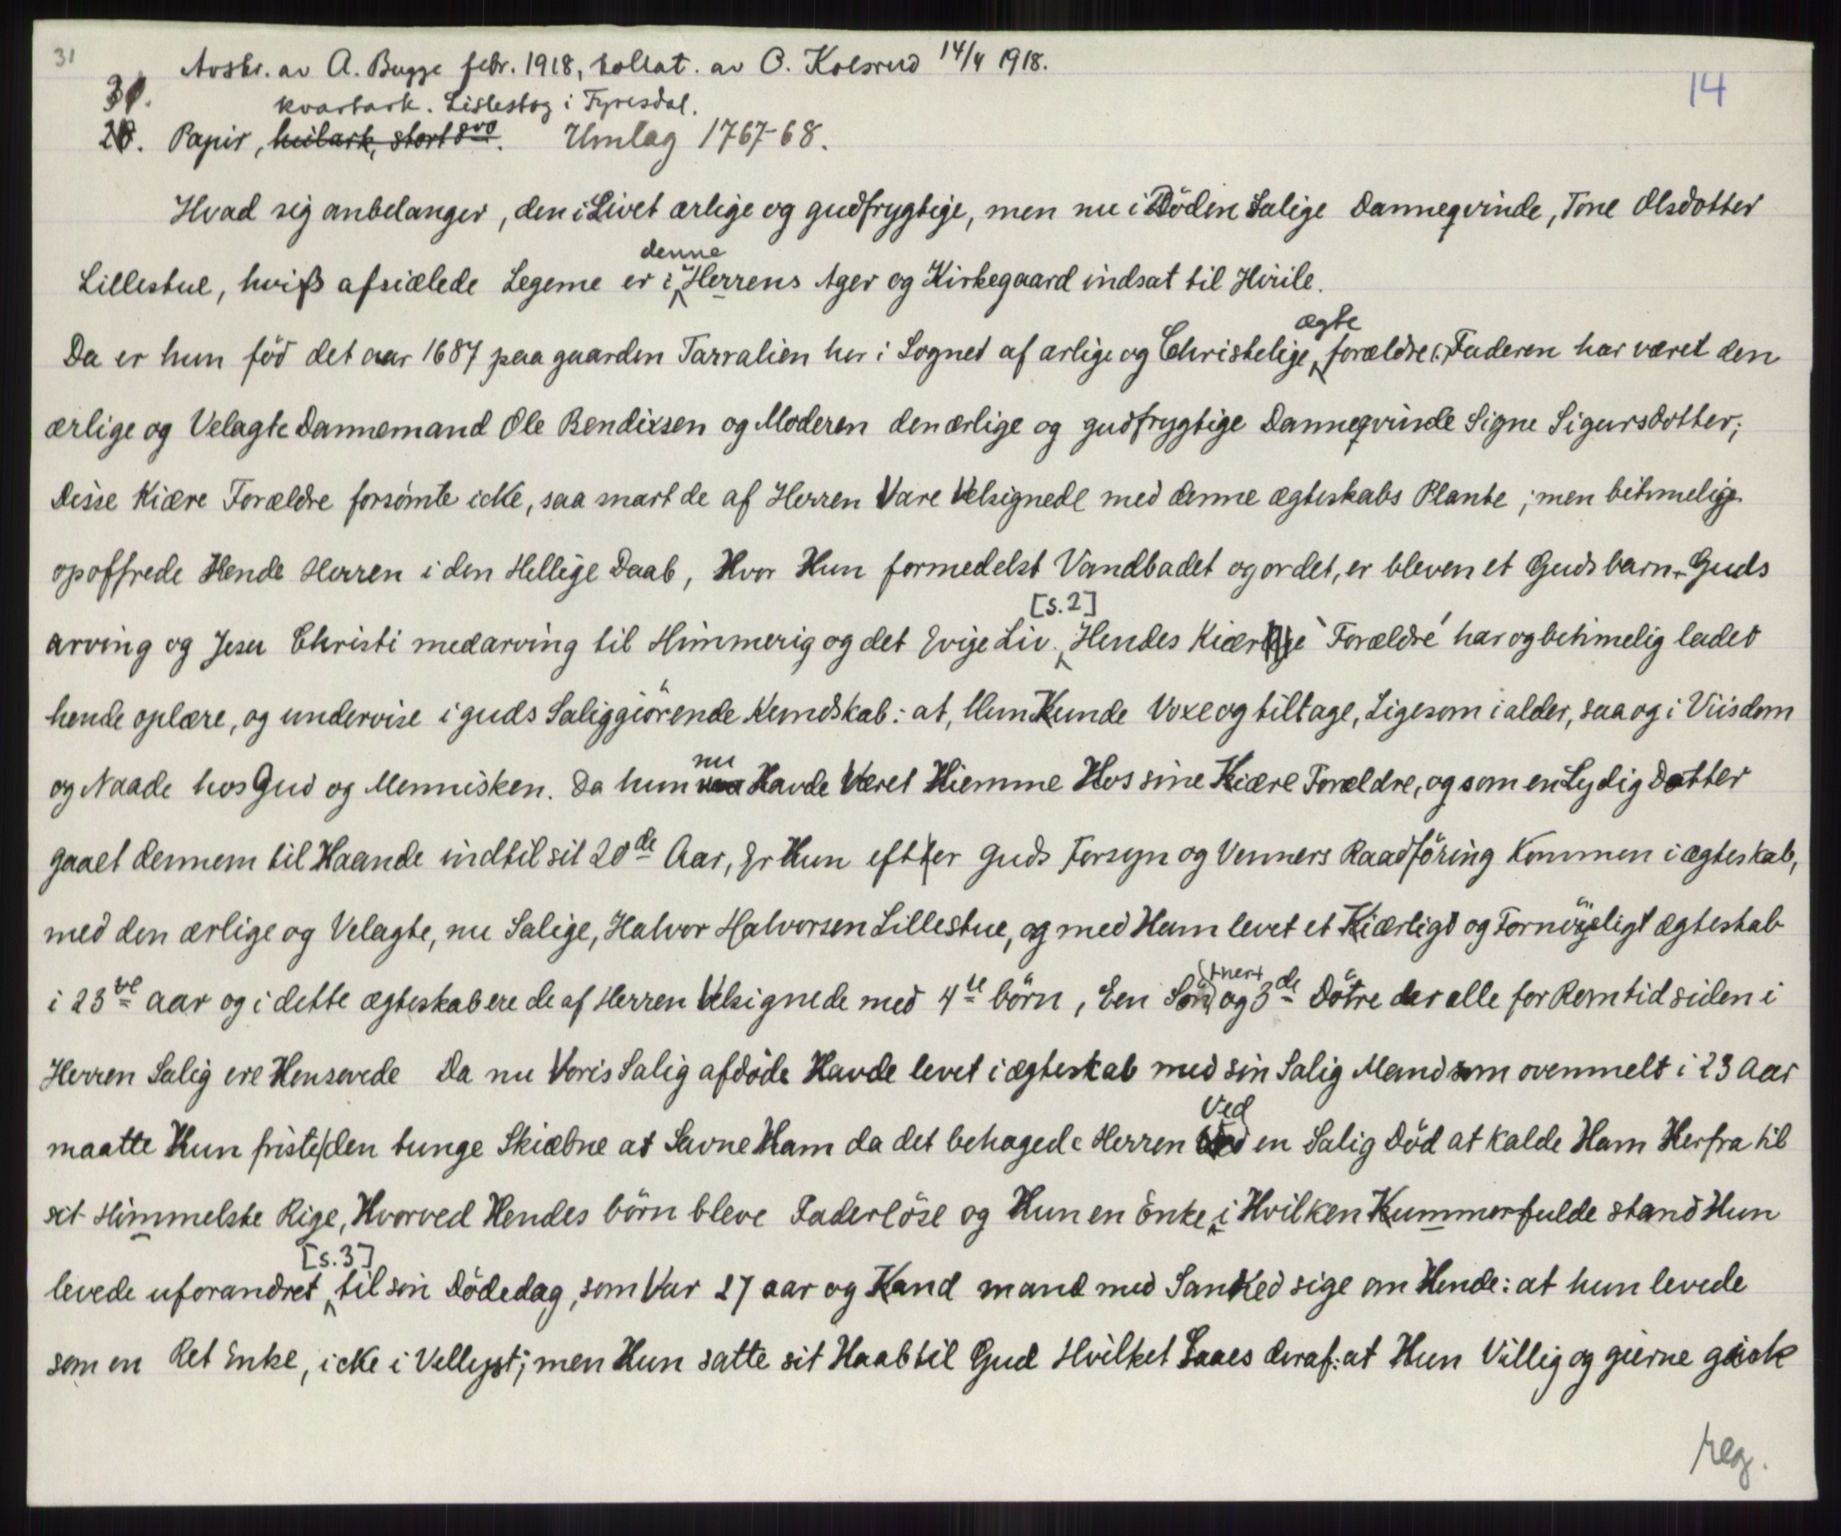 31
Avskr. av A. Bugge febr. 1918, kollat. av O. Kolsrud 14/4 1918.
31. kvartark. Lislestog i Tyresdal. 14
28. Papir, heilark, stort 8vo. Umlag 1767-68.
Hvad sig anbelanger, den i Livet ærlige og gudfrygtige, men nu i Döden Salige Danneqvinde, Tone Olsdotter
Lillestue, hviß afsiælede Legeme er i denne Herrens Ager og Kirkegaard indsat til Hvile.
Da er hun föd det aar 1687 paa gaarden Tarralien her i Sognet af ærlige og Christelige ægte forældre (: Faderen har været den
ærlige og Velagte Dannemand Ole Bendixsen og Moderen den ærlige og gudfrygtige Danneqvinde Signe Sigursdotter;
Disse Kiære Forældre forsømte icke, saa snart de af Herren Vare Velsignede med denne ægteskabs Plante; men betimelig
opoffrede Hende Herren i den Hellige Daab, Hvor Hun formedelst Vandbadet og ordet, er bleven et Guds barn, Guds
arving og Jesu Christi medarving til Himmerig og det Evige Liv. [s.2] Hendes Kiære Forældre har og betimelig ladet
hende oplære, og undervise i guds Saliggiörende Kundskab: at, Hun Kunde Voxe og tiltage, Ligesom i alder, saa og i Viisdom
og Naade hos Gud og Mennisken. Da hun nu Havde Været Hiemme Hos sine Kiære Forældre, og som en Lydig Datter
gaaet dennem til Haande indtil sit 20de Aar, Er Hun efter guds Forsyn og Venners Raadföring Kommen i ægteskab,
med den ærlige og Velagte, nu Salige, Halvor Halvorsen Lillestue, og med Ham levet et Kiærligt og Fornöyeligt ægteskab
i 23de aar og i dette ægteskab ere de af Herren Velsignede med 4re börn, Een Sön og 3de Dötre der alle for Rom tid siden i
Herren Salig ere Hensovede Da nu Voris Salig afdöde Havde levet i ægteskab med sin Salig Mand som ovenmelt i 23 Aar
maatte Hun friste den tunge Skiæbne at Savne Ham da det behagede Herren Ved en Salig Död at kalde Ham Herfra til
sit Himmelske Rige, Hvorved Hendes börn bleve Faderlöse og Hun en Enke, i Hvilken Kummerfulde stand Hun
levede uforandret [s.3] til sin Dödedag, som Var 27 aar og Kand mand med Sanhed sige om Hende: at hun levede
som en Ret Enke, icke i Vellyst; men Hun satte sit Haab til Gud Hvilket Saaes deraf: at Hun Villig og gierne gick
reg.